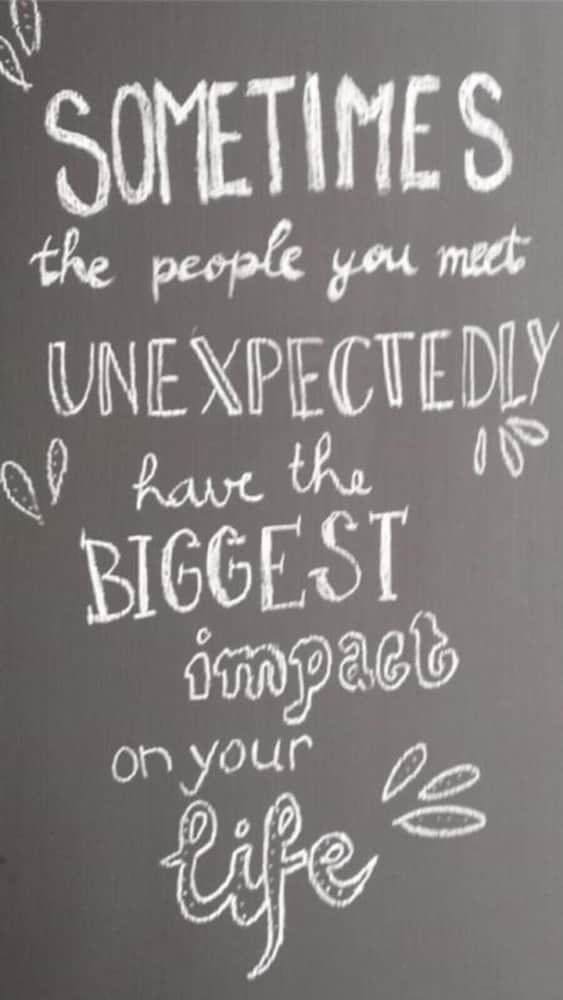 SOMETIMES
the people you meet
UNEXPECTEDLY
have the
BIGGEST
impact
on your
life